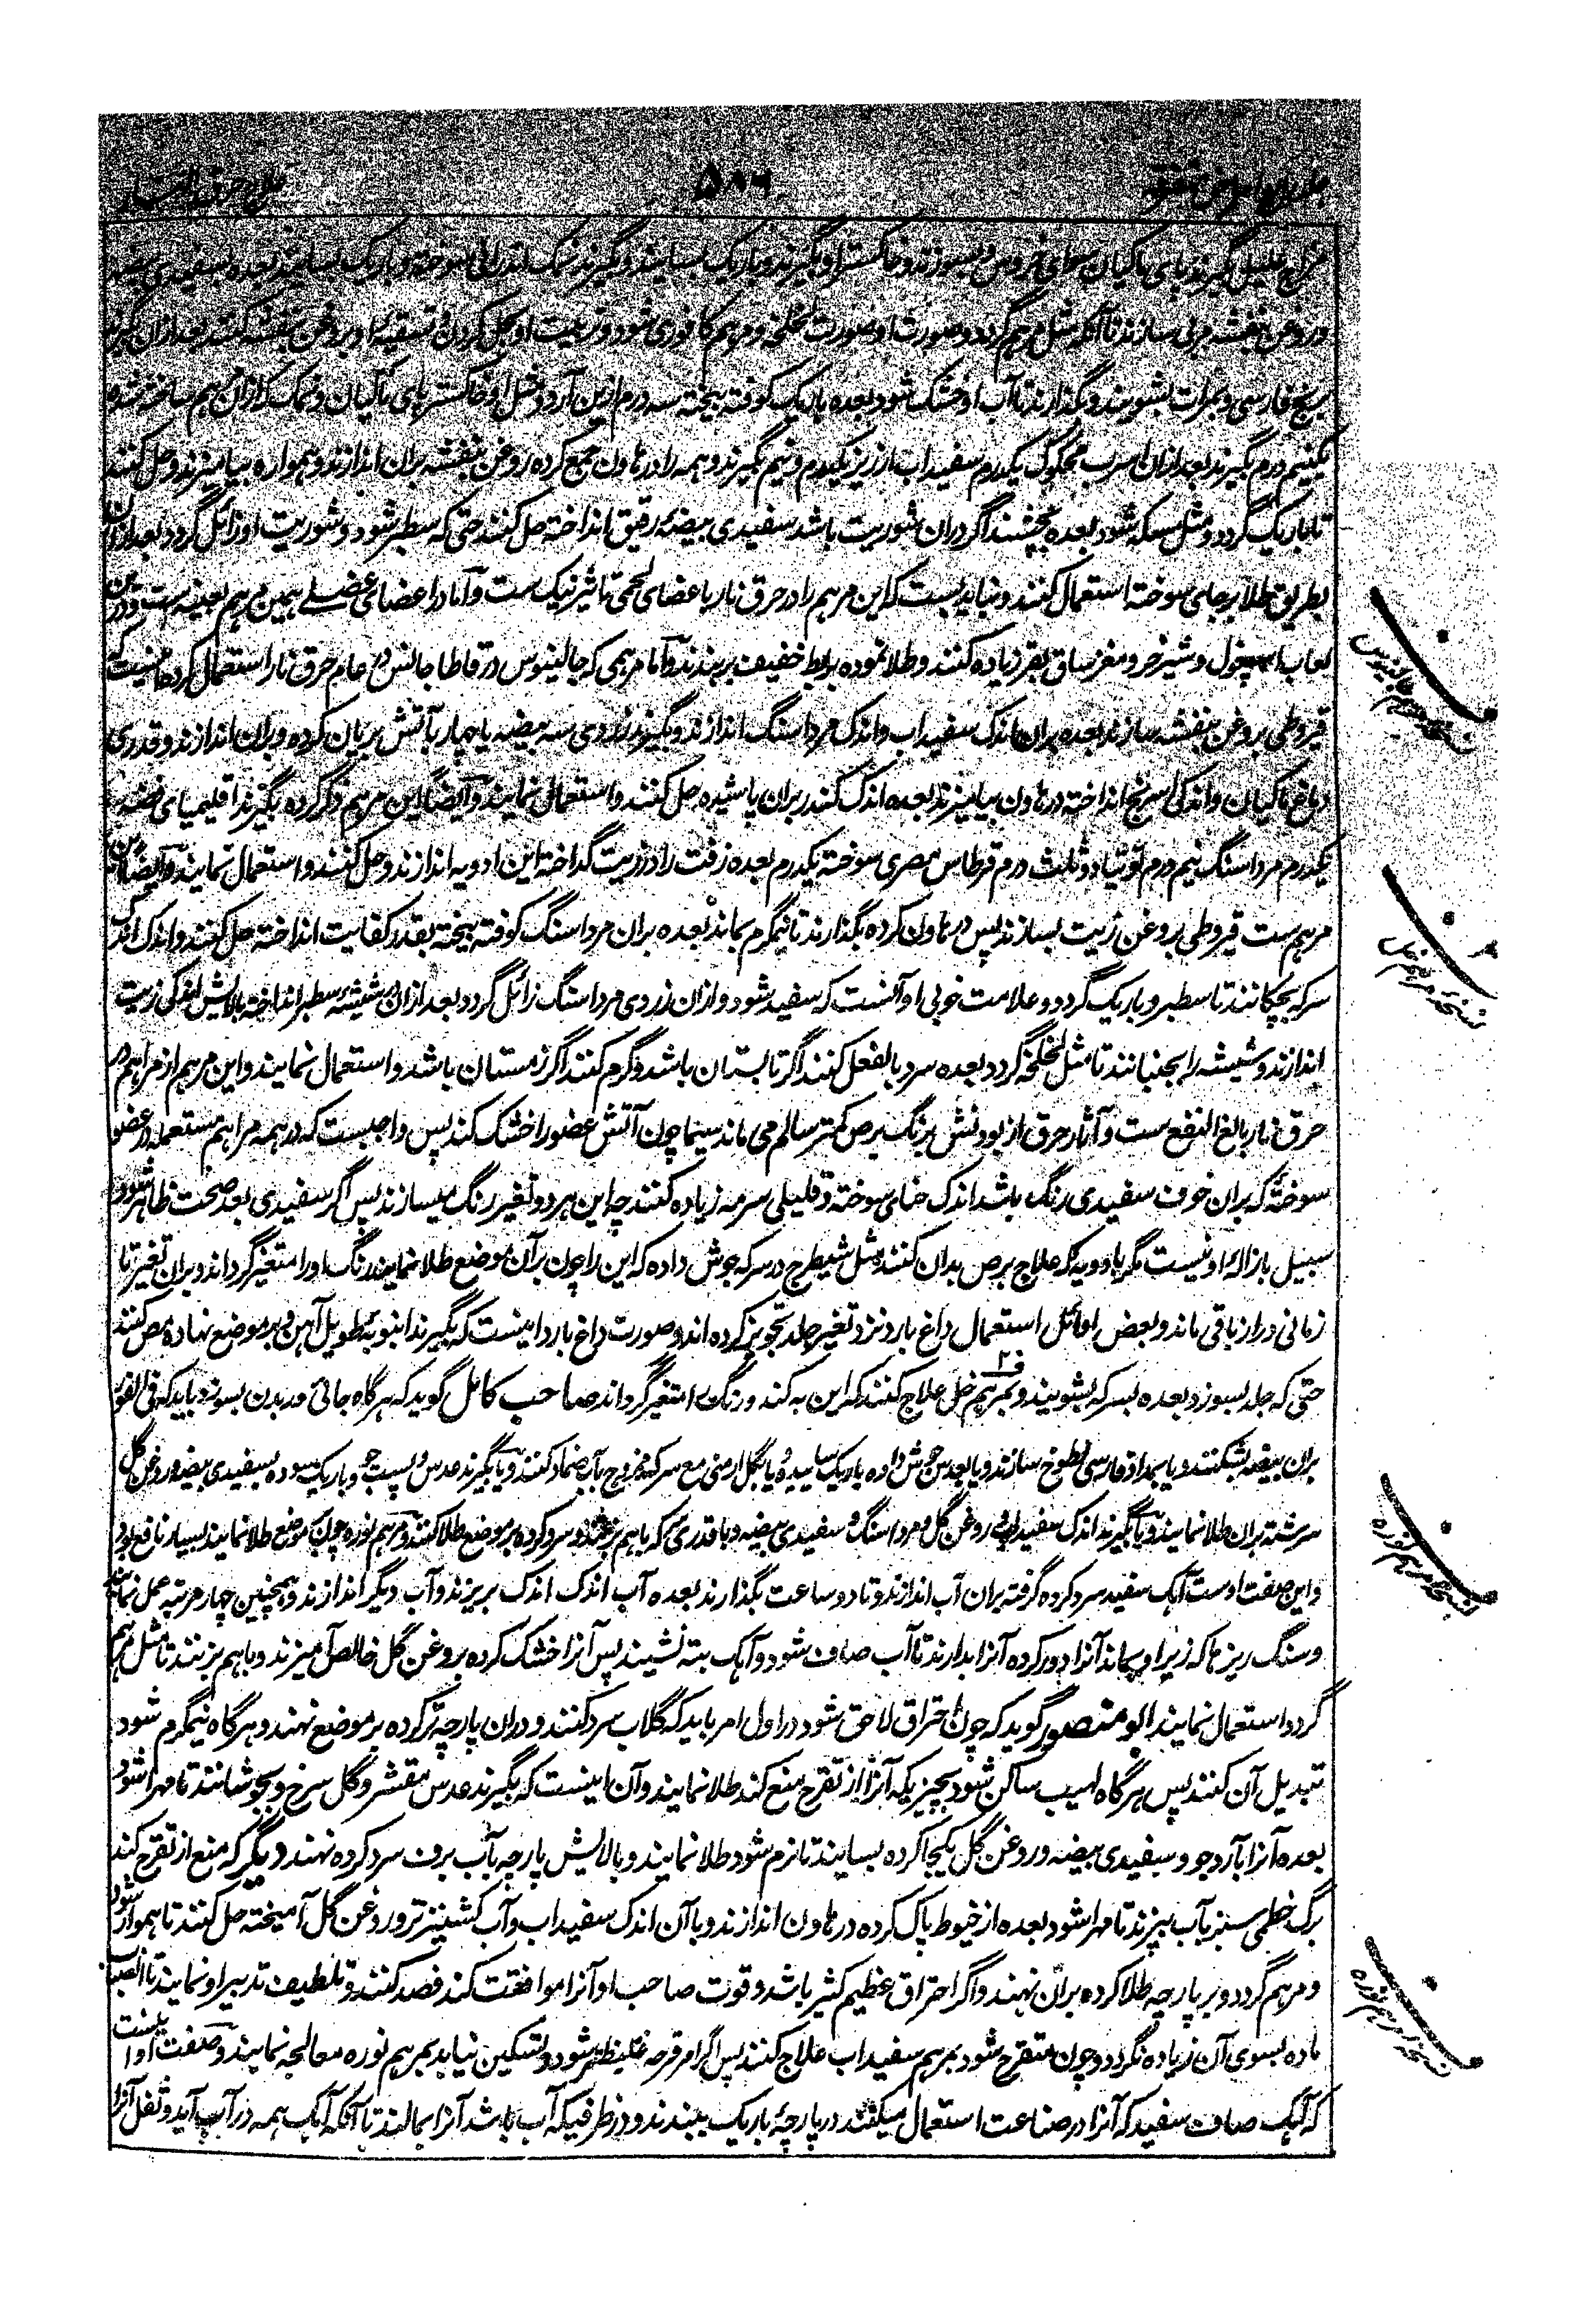 ۵۸۶
مزاج علیل گیرند پای ماکیان سوای خروس و بسوزند و خاکستر او بگیرند و باریک بسایند و بگیرند نمک اندرانی سوخته و باریک بسایند بعده بسفیدی بیضه
و روغن بنفشه مربی سازند تا آنکه مثل مرهم گردد و صورت او صورت لخلخه و مرهم کافوری شود و تربیت او بحل کردن تسقیه او بروغن بنفشه کنند بعد ازان بگیرند
برنج فارسی و بمرات بشویند و بگذارند تا آب او خشک شود بعده باریک کوفته بیخته سه درم ازین آرد و مثل او خاکستر پای ماکیان و نمک که ازان مرهم ساخته شده
یکنیم درم بگیرند بعد ازان اسرب محکوک یکدرم سفیداب ارزیز یکدرم و نیم بگیرند و همه را در هاون جمع کرده روغن بنفشه بران اندازند و همواره بیامیزند و حل کنند
تا باریک گردد و مثل مسکه شود بعده بچشند اگر دران شوریت باشد سفیدی بیضه رقیق انداخته حل کنند حتی که سطبر شود و شوریت او زائل گردد بعد ازان
بطریق طلا بر جای سوخته استعمال کنند و بباید دانست که این مرهم را در حرق نار باعضای لحمی تاثیر نیک ست و اما در اعضای عضلے بهمین مرهم بعینه
لعاب اسپغول و شیر خر و مغز ساق بقر زیاده کنند و طلا نموده برباط خفیف بربندند و اما مرهمی که جالینوس در قاطاجانس در عام حرق نار استعمال کرده اینست که
قیروطی بروغن بنفشه سازند بعده بران اندک سفیداب و اندک مرداسنگ اندازند و بگیرند زردی سه بیضه یا چهار بآتش بریان کرده و بران اندازند و قدری
دماغ ماکیان و اندکی اسرنج انداخته در هاون بیامیزند بعده اندک کندر بران پاشیده حل کنند و استعمال نمایند و ایضا این مرهم ذکر کرده بگیرند اقلیمیای فضه
یکدرم مرداسنگ نیم درم توتیا دو ثلث درم قرطاس مصری سوخته یکدرم بعده زفت را در زیت گداخته این ادویه اندازند و حل کنند و استعمال نمایند و ایضا این
مرهم ست قیروطی بروغن زیت بسازند پس در هاون کرده بگذارند تا نیمگرم بماند بعده بران مرداسنگ کوفته بیخته بقدر کفایت انداخته حل کنند و اندک اندک
سرکه بچکانند تا سطبر و باریک گردد و علامت خوبی او آنست که سفید شود و ازان زردی مرداسنگ زائل گردد بعد ازان در شیشه سطبر انداخته بالایش اندکی زیت
اندازند و شیشه را بجنبانند تا مثل لخلخه گردد بعده سرد بالفعل کنند اگر تابستان باشد و گرم کنند اگر زمستان باشد و استعمال نمایند و این مرهم از مراهم در
حرق نار بالغ النفع ست و آثار حرق از بودنش برنگ برص کمتر سالم می ماند سیما چون آتش عضو را خشک کند پس واجبست که در همه مراهم مستعمله در عضو
سوخته که بران خوف سفیدی رنگ باشد اندک حنای سوخته و قلیلی سرمه زیاده کنند چه این هر دو تغیر رنگ میسازند پس اگر سفیدی بعد صحت ظاهر شود
سبیل بازاله او نیست مگر بادویه که علاج برص بدان کنند مثل شیطرج در سرکه جوش داده که این را چون بر آن موضع طلا نمایند رنگ او را متغیر گرداند و بران تغیر تا
زمانی دراز باقی ماند و بعض اوائل استعمال داغ بارد نزد تغیر جلد تجویز کرده اند و صورت داغ بارد اینست که بگیرند انبوبه طویل آهن و بر موضع نهاده مص کنند
حتی که جلد بسوزد بعده بسرکه بشویند و بمرهم خل علاج کنند که این به کند و رنگ را متغیر گرداند صاحب کامل گوید که هرگاه جائی در بدن بسوزد باید که فی الفور
بران بیضه بشکنند و یا بمداد فارسی لطوخ سازند و یا بعدس جوش داده باریک ساییده و یا بگل ارمنی مع سرکه ممزوج بآب ضماد کنند و یا بگیرند عدس و پست جو و باریک سوده بسفیدی بیضه و روغن گل
سرشته بران طلا نمایند و یا بگیرند اندک سفیداب و روغن گل و مرداسنگ و سفیدی بیضه و با قدری سرکه باهم زنند و سرد کرده بر موضع طلا کنند و مرهم نوره چون بر موضع طلا نمایند بسیار نافع بود
و این صفت اوست آهک سفید سرد کرده گرفته بران آب اندازند و تا دو ساعت بگذارند بعده آب اندک اندک بریزند و آب دیگر اندازند و همچنین چهار مرتبه عمل نمایند
و سنگ ریزها که زیر او بماند آنرا دور کرده آنرا بدارند تا آب صاف شود و آهک بته نشیند پس آنرا خشک کرده بروغن گل خالص آمیزند و باهم بزنند تا مثل مرهم
گردد استعمال نمایند ابو منصور گوید که چون احتراق لاحق شود در اول امر باید که گلاب سرد کنند و دران پارچه تر کرده بر موضع نهند و هرگاه نیمگرم شود
تبدیل آن کنند پس هرگاه لهیب ساکن شود بچیزیکه آنرا از تقرح منع کند طلا نمایند و آن اینست که بگیرند عدس مقشر و گل سرخ و بجوشانند تا مهرا شود
بعده آنرا بآرد جو و سفیدی بیضه و روغن گل یکجا کرده بسایند تا نرم شود طلا نمایند و بالایش پارچه بآب برف سرد کرده نهند دیگر که منع از تقرح کند
برگ خطمی سبز بآب بپزند تا مهرا شود بعده از خیوط پاک کرده در هاون اندازند و با آن اندک سفیداب و آب کشنیز تر و روغن گل آمیخته حل کنند تا هموار شود
و مرهم گردد و بر پارچه طلا کرده بران نهند و اگر احتراق عظیم کثیر باشد و قوت صاحب او آنرا موافقت کند فصد کنند و تلطیف تدبیر او نمایند تا انصباب
ماده بسوی آن زیاده نگردد و چون متقرح شود بمرهم سفیداب علاج کنند پس اگر امر قرحه غلیظ تر شود و تسکین نیابد بمرهم نوره معالجه نمایند و صفت او اینست
که آهک صاف سفید که آنرا در صناعت استعمال میکنند در پارچه باریک ببندند و در ظرفیکه آب باشد آنرا بمالند تا آنکه آهک همه در آب آید و ثفل آنرا
نسخه مرهم جالینوس
نسخه مرهم نوره
نسخه مرهم نوره